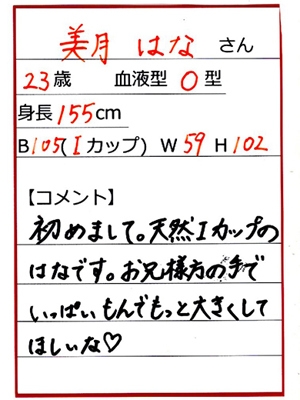 美月 はな さん
23歳 血液型 O型
身長155cm
B105(Iカップ) W59 H102
【コメント】
初めまして。天然Iカップの
はなです。お兄様方の手で
いっぱいもんでもっと大きくして
ほしいな♡